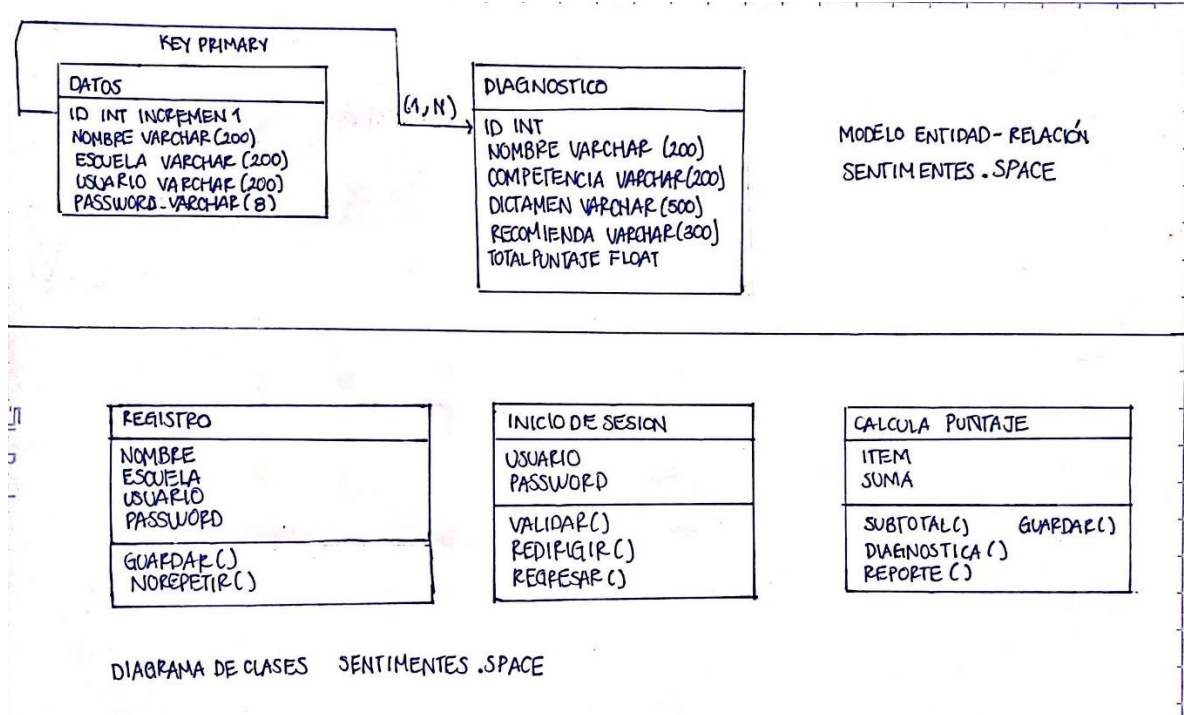 KEY PRIMARY
DATOS
ID INT INCREMEN 1
NOMBRE VARCHAR (200)
ESCUELA VARCHAR (200)
USUARIO VARCHAR (200)
PASSWORD VARCHAR (8)
(1,N)
DIAGNOSTICO
ID INT
NOMBRE VARCHAR (200)
COMPETENCIA VARCHAR (200)
DICTAMEN VARCHAR (500)
RECOMIENDA VARCHAR (300)
TOTAL PUNTAJE FLOAT
MODELO ENTIDAD-RELACIÓN
SENTIMENTES.SPACE
REGISTRO
NOMBRE
ESCUELA
USUARIO
PASSWORD
GUARDAR()
NOREPETIR()
INICIO DE SESION
USUARIO
PASSWORD
VALIDAR()
REDIRIGIR()
REGRESAR()
CALCULA PUNTAJE
ITEM
SUMA
SUBTOTAL() GUARDAR()
DIAGNOSTICA()
REPORTE()
DIAGRAMA DE CLASES SENTIMENTES.SPACE